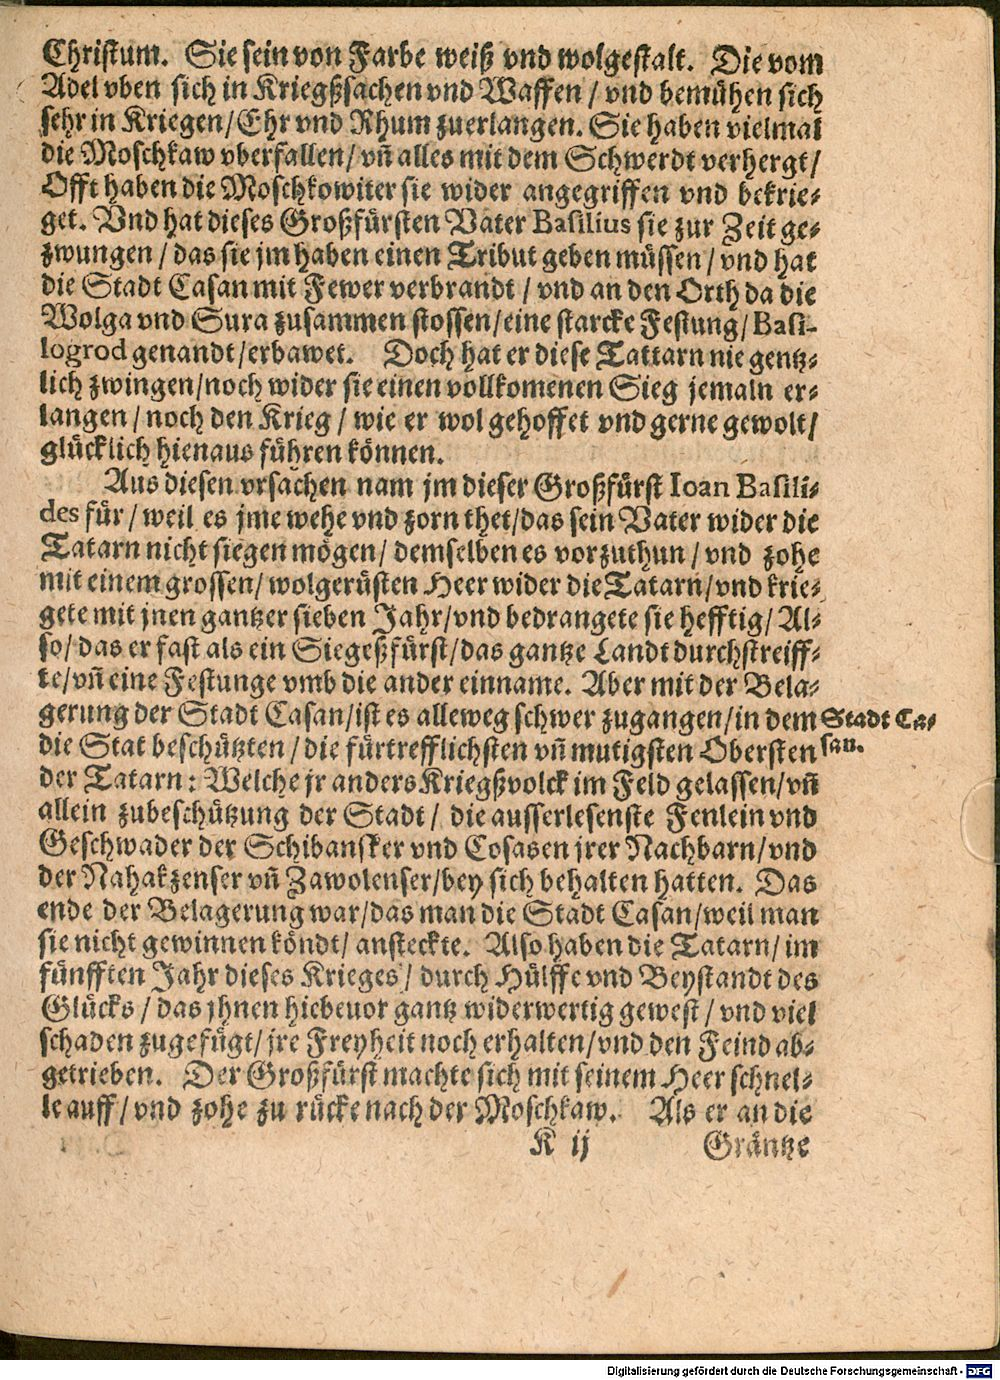 Christum. Sie sein von Farbe weiß vnd wolgestalt. Die vom
Adel vben sich in Kriegßsachen vnd Waffen / vnd bemühen sich
sehr in Kriegen/Ehr vnd Rhum zuerlangen. Sie haben vielmal
die Moschkaw vberfallen/vn̄ alles mit dem Schwerdt verhergt/
Offt haben die Moschkowiter sie wider angegriffen vnd bekrie-
get. Vnd hat dieses Großfürsten Vater Basilius sie zur Zeit ge-
zwungen / das sie jm haben einen Tribut geben müssen / vnd hat
die Stadt Casan mit Fewer verbrandt / vnd an den Orth da die
Wolga vnd Sura zusammen stossen/eine starcke Festung/Basi-
logrod genandt/erbawet. Doch hat er diese Tattarn nie gentz-
lich zwingen/noch wider sie einen vollkomenen Sieg jemaln er-
langen / noch den Krieg / wie er wol gehoffet vnd gerne gewolt/
glücklich hienaus führen können.
Aus diesen vrsachen nam jm dieser Großfürst Ioan Basili-
des für / weil es jme wehe vnd zorn thet/das sein Vater wider die
Tatarn nicht siegen mögen/ demselben es vorzuthun / vnd zohe
mit einem grossen/wolgerüsten Heer wider die Tatarn/vnd krie-
gete mit jnen gantzer sieben Jahr/vnd bedrangete sie hefftig/ Al-
so/das er fast als ein Siegeßfürst/das gantze Landt durchstreiff-
te/vn̄ eine Festunge vmb die ander einname. Aber mit der Bela-
gerung der Stadt Casan/ist es alleweg schwer zugangen/in dem
Stadt Ca-
die Stat beschützten / die fürtrefflichsten vn̄ mutigsten Obersten
san.
der Tatarn: Welche jr anders Kriegßvolck im Feld gelassen/vn̄
allein zubeschützung der Stadt / die ausserlesenste Fenlein vnd
Geschwader der Schibansker vnd Cosasen jrer Nachbarn/vnd
der Nahakzenser vn̄ Zawolenser/bey sich behalten hatten. Das
ende der Belagerung war/das man die Stadt Casan/weil man
sie nicht gewinnen köndt/ ansteckte. Also haben die Tatarn/im
fünfften Jahr dieses Krieges / durch Hülffe vnd Beystandt des
Glücks / das jhnen hiebeuor gantz widerwertig gewest / vnd viel
schaden zugefügt/jre Freyheit noch erhalten/vnd den Feind ab-
getrieben. Der Großfürst machte sich mit seinem Heer schnel-
le auff/vnd zohe zu rücke nach der Moschkaw. Als er an die
K ij Gräntze
Digitalisierung gefördert durch die Deutsche Forschungsgemeinschaft - DFG